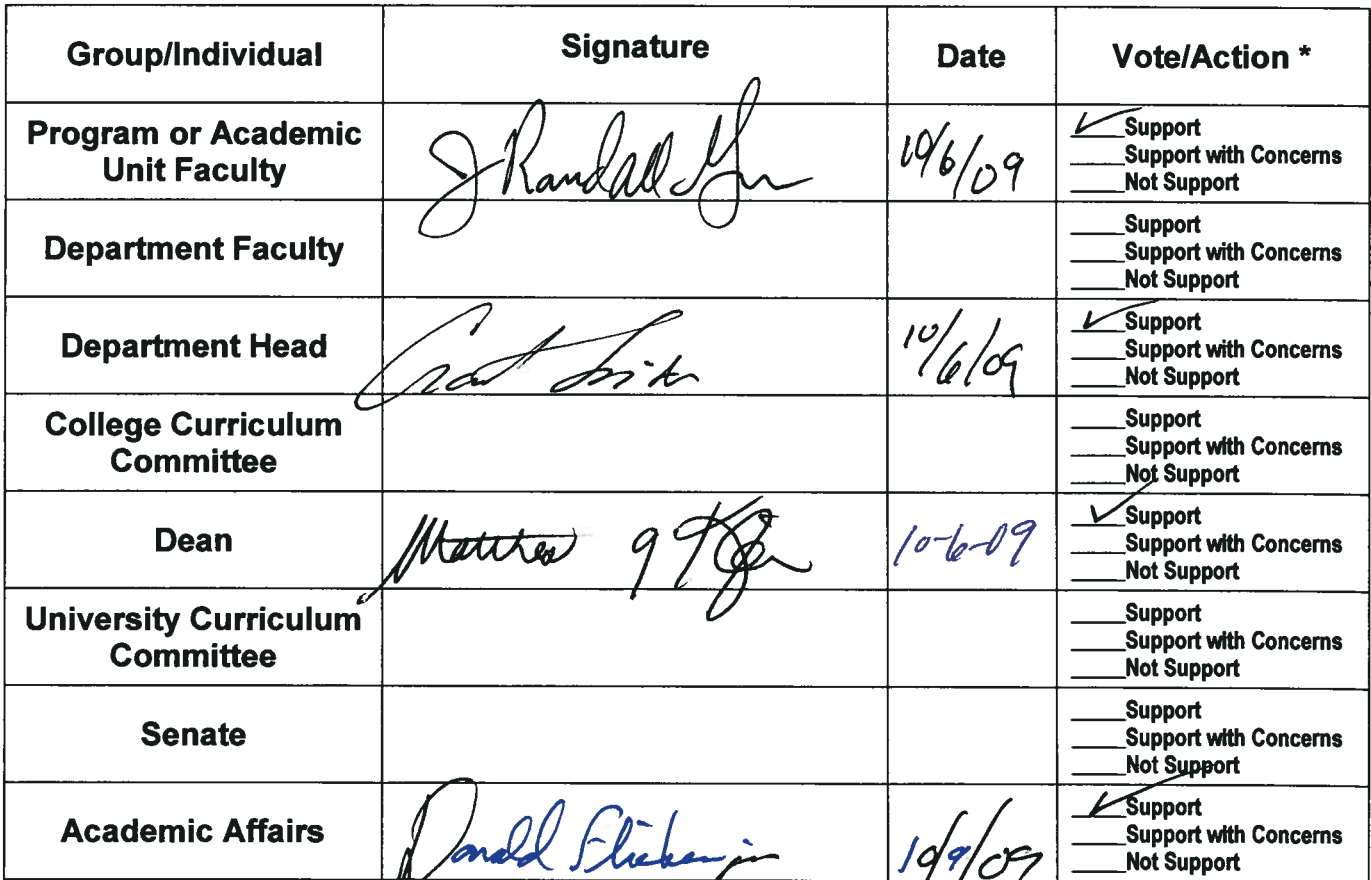 Group/Individual Signature Date Vote/Action *
Program or Academic
Unit Faculty
J Randall
10/6/09
____Support
____Support with Concerns
____Not Support
Department Faculty
____Support
____Support with Concerns
____Not Support
Department Head
10/6/09
____Support
____Support with Concerns
____Not Support
College Curriculum
Committee
____Support
____Support with Concerns
____Not Support
Dean
Matthew
10-6-09
____Support
____Support with Concerns
____Not Support
University Curriculum
Committee
____Support
____Support with Concerns
____Not Support
Senate
____Support
____Support with Concerns
____Not Support
Academic Affairs
Donald
10/9/09
____Support
____Support with Concerns
____Not Support